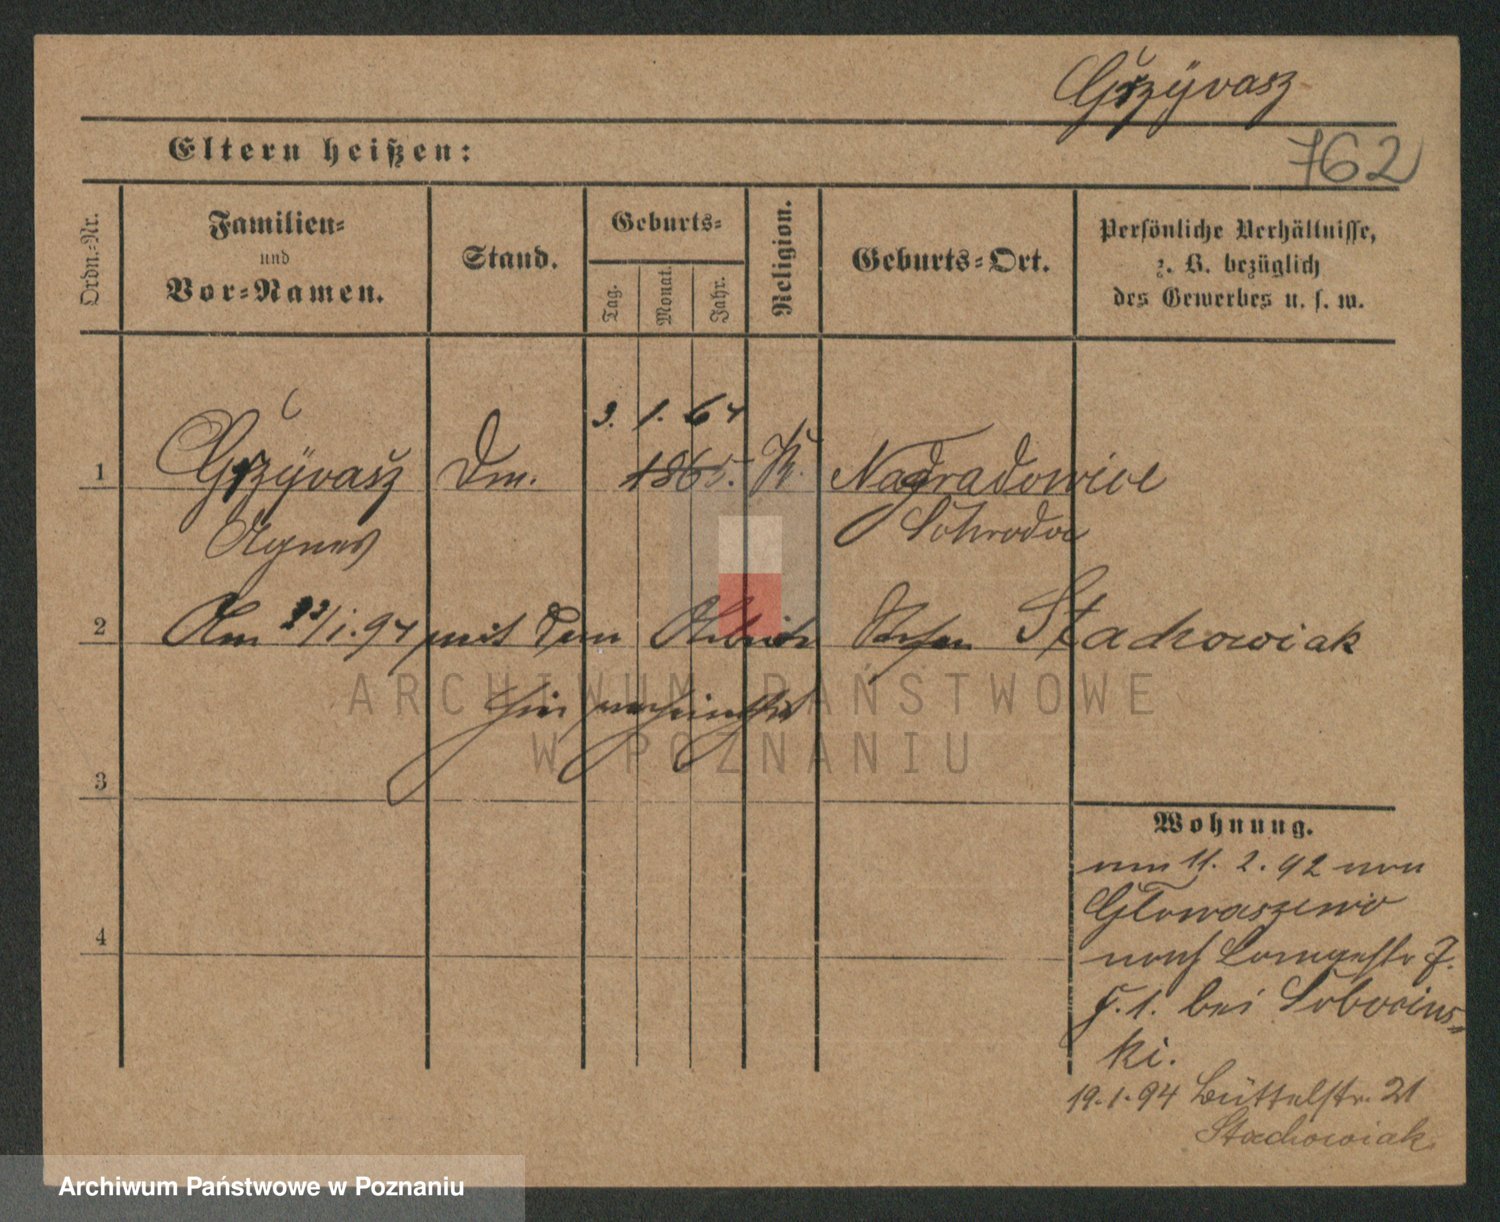 Grzÿwasz
762
Eltern heißen:
Ordn.-Nr.
Familien-
und
Vor-Namen.
Stand.
Geburts-
Tag.
Monat.
Jahr.
Religion.
Geburts-Ort.
Persönliche Verhältnisse,
z. B. bezüglich
des Gewerbes u. s. w.
3. 1. 64
1 Grzÿwasz Dm. 1865. K. Nagradowice
Agnes Schroda
2 Am 23/1.94 mit dem Arbeiter Stefan Stachowiak
hier verheirathet
3
4
Wohnung.
am 11. 2. 92 von
nach Langestr 7.
I. 1. bei Sobocins-
ki.
19.1.94 Büttelstr. 21
Stachowiak
ARCHIWUM PAŃSTWOWE
W POZNANIU
Archiwum Państwowe w Poznaniu